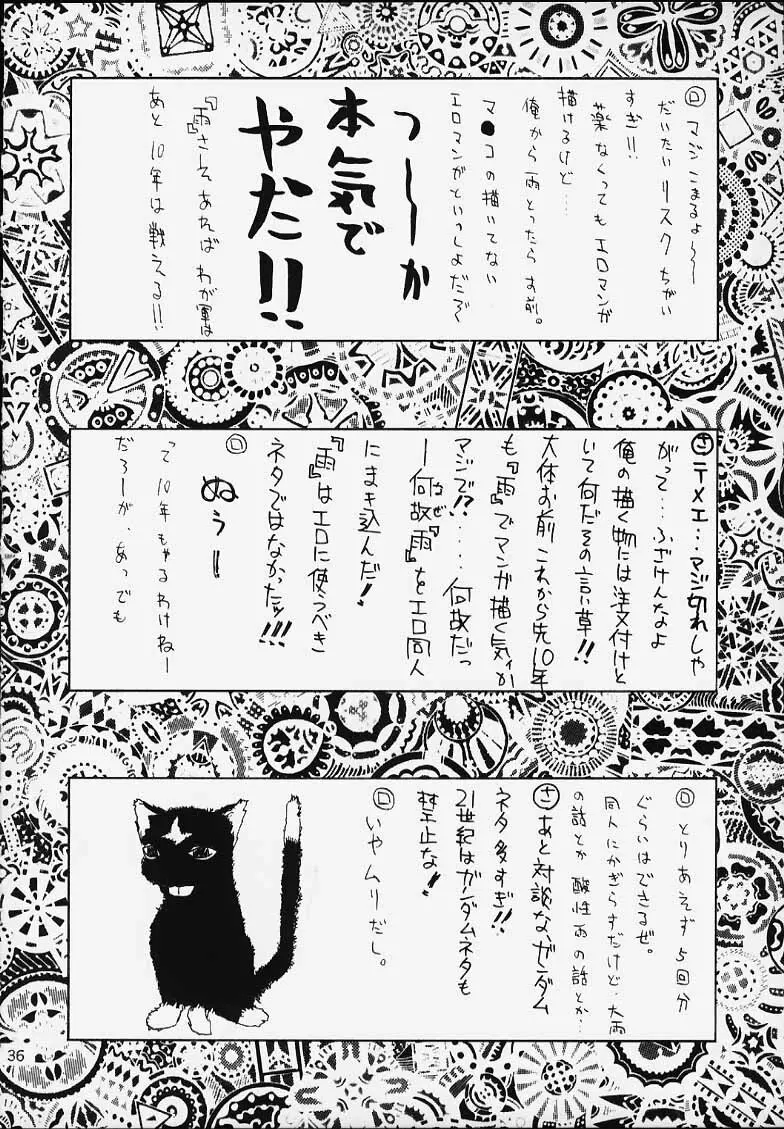 ロ マジ こまるよ〜〜
だいたい リスク ちがい
すぎ!!
薬なくっても エロマンガ
描けるけど…
俺から雨とったら お前。
マ●コの描いてない
エロマンガといっしょだぞ〜
つ〜〜か
本気で
やだ!!
『雨』さえあれば わが軍は
あと10年は戦える!!
さ テメエ…マジ切れしゃ
がって…ふざけんなよ
俺の描く物には注文付けと
いて何だその言い草!!
大体お前これから先10年
も『雨』でマンガ描く気か
マジで!?....何故だっ
ー何故『雨』をエロ同人
なぜ
にまき込んだ!
『雨』はエロに使うべき
ネタではなかったッ!!!
ロ ぬぅー
って 10年もやるわけねー
だろーが、あっでも
ロ とりあえず 5回分
ぐらいはできるぜ。
同人にかぎらずだけど、大雨
の話とか 酸性雨の話とか…
さ あと対談な、ガンダム
ネタ多すぎ!!
21世紀はガンダムネタも
禁止な!!
ロ いやムリだし。
36